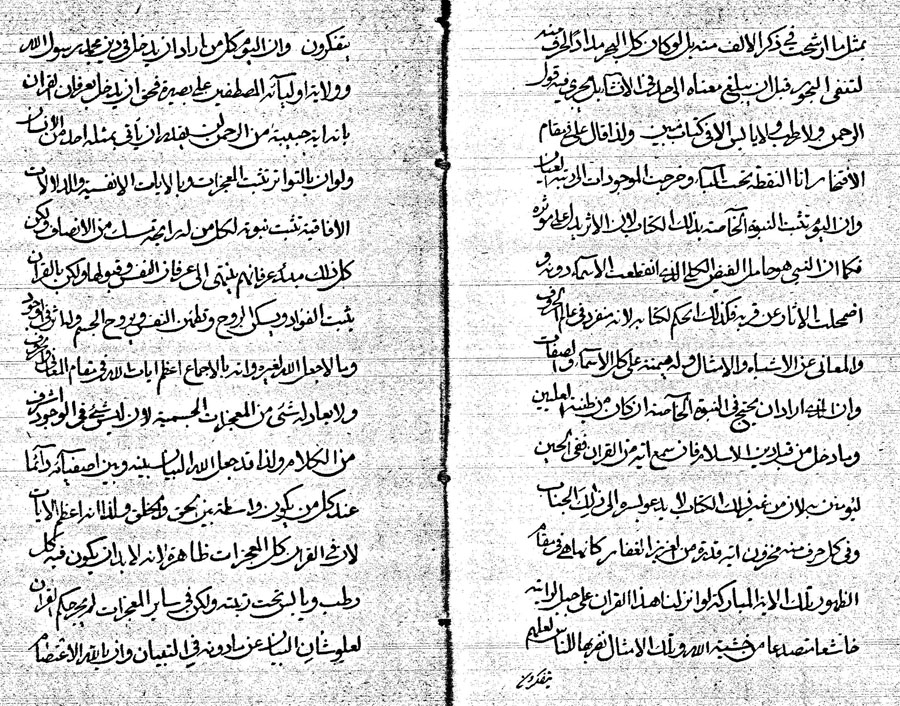 بمثل ما ارشحت في ذكر الالف منه بل لو كان كل البحر مدادا لحرف منه
لتنفي البحور قبل ان يبلغ معناه الى حد في الانشاء بل يجري فيه قول
الرحمن ولا رطب ولا يابس الا في كتاب مبين ولذا قال علي في مقام
الافتخار انا النقطة تحت الباء وخرجت الموجودات الى
وان اليوم تثبت النبوة الخاصة بذلك الكتاب لان الاثر يدل على مؤثره
فكما ان النبي هو حامل الفيض الكلي الذي انقطعت الاسماء دونه و
اضمحلت الاثار عن قربه فكذلك الحكم لكتابه لانه متفرد في عالم الحروف
والمعاني عن الاشباه والامثال وله هيمنة على كل الاسماء والصفات
وان الذي اراد ان يحتج في النبوة الخاصة ان كان من طينة العليين
وما دخل من قبل دين الاسلام فان سمع اية من القران ففي الحين
ليؤمنن به لان من غير ذلك الكتاب لا يدعو له والى ذلك الجناب
وفي كل حرف منه مخزون اية قدرة من العزيز الغفار كما هي في مقام
الظهور تلك الاية المباركة لو انزلنا هذا القران على جبل لرايته
خاشعا متصدعا من خشية الله وتلك الامثال نضربها للناس لعلهم
يتفكرون
يتفكرون وان اليوم كل من اراد ان يدخل في دين محمد رسول الله
وولاية اوليائه المصطفين على بصيرة فحق ان يدخل بعرفان القران
بانه اية حبيبه من الرحمن لن يقدر ان يأتي بمثله احد من الانسان
ولو ان بالتواتر تثبت المعجزات وبالايات الانفسية والدلالات
الافاقية تثبت نبوته لكل من له رايحة مسك من الانصاف ولكن
كل ذلك مبدء عرفانهم ينتهي الى عرفان النفس وقبولها ولكن بالقران
يثبت الفؤاد ويسكن الروح وتطمئن النفس ويروح الجسم ولذا
وما لا جعل الله لغيره وانه بالاجماع اعظم ايات الله في مقام
ولا يعادله شئ من المعجزات الجسمية لان ليس شئ في الوجود اشرف
من الكلام ولذا قد جعل الله البيان بينه وبين اصفيائه دائما
عند كل من يكون واسطة بين الحق والخلق ولذا انه اعظم الايات
لان في القران كل المعجزات ظاهرة لانه لا بد ان يكون فيه كل
رطب ويابس تحت رتبته ولكن في ساير المعجزات لم يجر حكم القران
لعلو شان البيان عن ما دونه في التبيان وان بالله الاعتصام